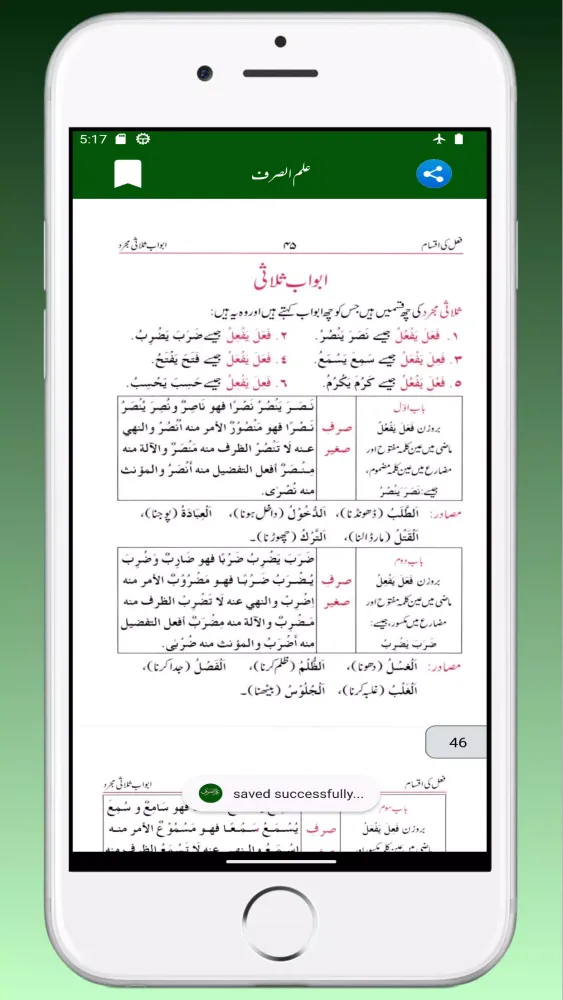 5:17
علم الصرف
فعل کی اقسام ۴۵ ابواب ثلاثی مجرد
ابواب ثلاثی
ثلاثی مجرد کی چھ قسمیں ہیں جس کو چھ ابواب کہتے ہیں اور وہ یہ ہیں:
۱. فَعَلَ يَفْعُلُ جیسے نَصَرَ يَنْصُرُ. ۲. فَعَلَ يَفْعِلُ جیسے ضَرَبَ يَضْرِبُ.
۳. فَعِلَ يَفْعَلُ جیسے سَمِعَ يَسْمَعُ. ٤. فَعَلَ يَفْعَلُ جیسے فَتَحَ يَفْتَحُ.
۵. فَعُلَ يَفْعُلُ جیسے كَرُمَ يَكْرُمُ. ٦. فَعِلَ يَفْعِلُ جیسے حَسِبَ يَحْسِبُ.
باب اوّل
بروزن فَعَلَ يَفْعُلُ
ماضی میں عین کلمہ مفتوح اور
مضارع میں عین کلمہ مضموم،
جیسے: نَصَرَ يَنْصُرُ
صرف
صغیر
نَصَرَ يَنْصُرُ نَصْرًا فهو نَاصِرٌ ونُصِرَ يُنْصَرُ
نَصْرًا فهو مَنْصُوْرٌ الأمر منه اُنْصُرْ والنهي
عنه لَا تَنْصُرْ الظرف منه مَنْصَرٌ والآلة منه
مِنْصَرٌ أفعل التفضيل منه أَنْصَرُ والمؤنث
منه نُصْرٰى.
مصادر: اَلطَّلَبُ (ڈھونڈنا)، اَلدُّخُوْلُ (داخل ہونا)، اَلْعِبَادَةُ (پوجنا)،
اَلْقَتْلُ (مار ڈالنا)، اَلتَّرْكُ (چھوڑنا)۔
باب دوم
بروزن فَعَلَ يَفْعِلُ
ماضی میں عین کلمہ مفتوح اور
مضارع میں مکسور، جیسے:
ضَرَبَ يَضْرِبُ
صرف
صغیر
ضَرَبَ يَضْرِبُ ضَرْبًا فهو ضَارِبٌ وضُرِبَ
يُضْرَبُ ضَرْبًا فهو مَضْرُوْبٌ الأمر منه
اِضْرِبْ والنهي عنه لَا تَضْرِبْ الظرف منه
مَضْرِبٌ والآلة منه مِضْرَبٌ أفعل التفضيل
منه أَضْرَبُ والمؤنث منه ضُرْبٰى.
مصادر: اَلْغَسْلُ (دھونا)، اَلظُّلْمُ (ظلم کرنا)، اَلْفَصْلُ (جدا کرنا)،
اَلْغَلْبُ (غلبہ کرنا)، اَلْجُلُوْسُ (بیٹھنا)۔
46
فعل کی اقسام ابواب ثلاثی مجرد
saved successfully...
باب سوم
بروزن فَعِلَ يَفْعَلُ
ماضی میں عین کلمہ مکسور اور
صرف
فهو سَامِعٌ و سُمِعَ
يُسْمَعُ سَمْعًا فهو مَسْمُوْعٌ الأمر منه
اِسْمَعْ والنهي عنه لَا تَسْمَعْ الظرف منه